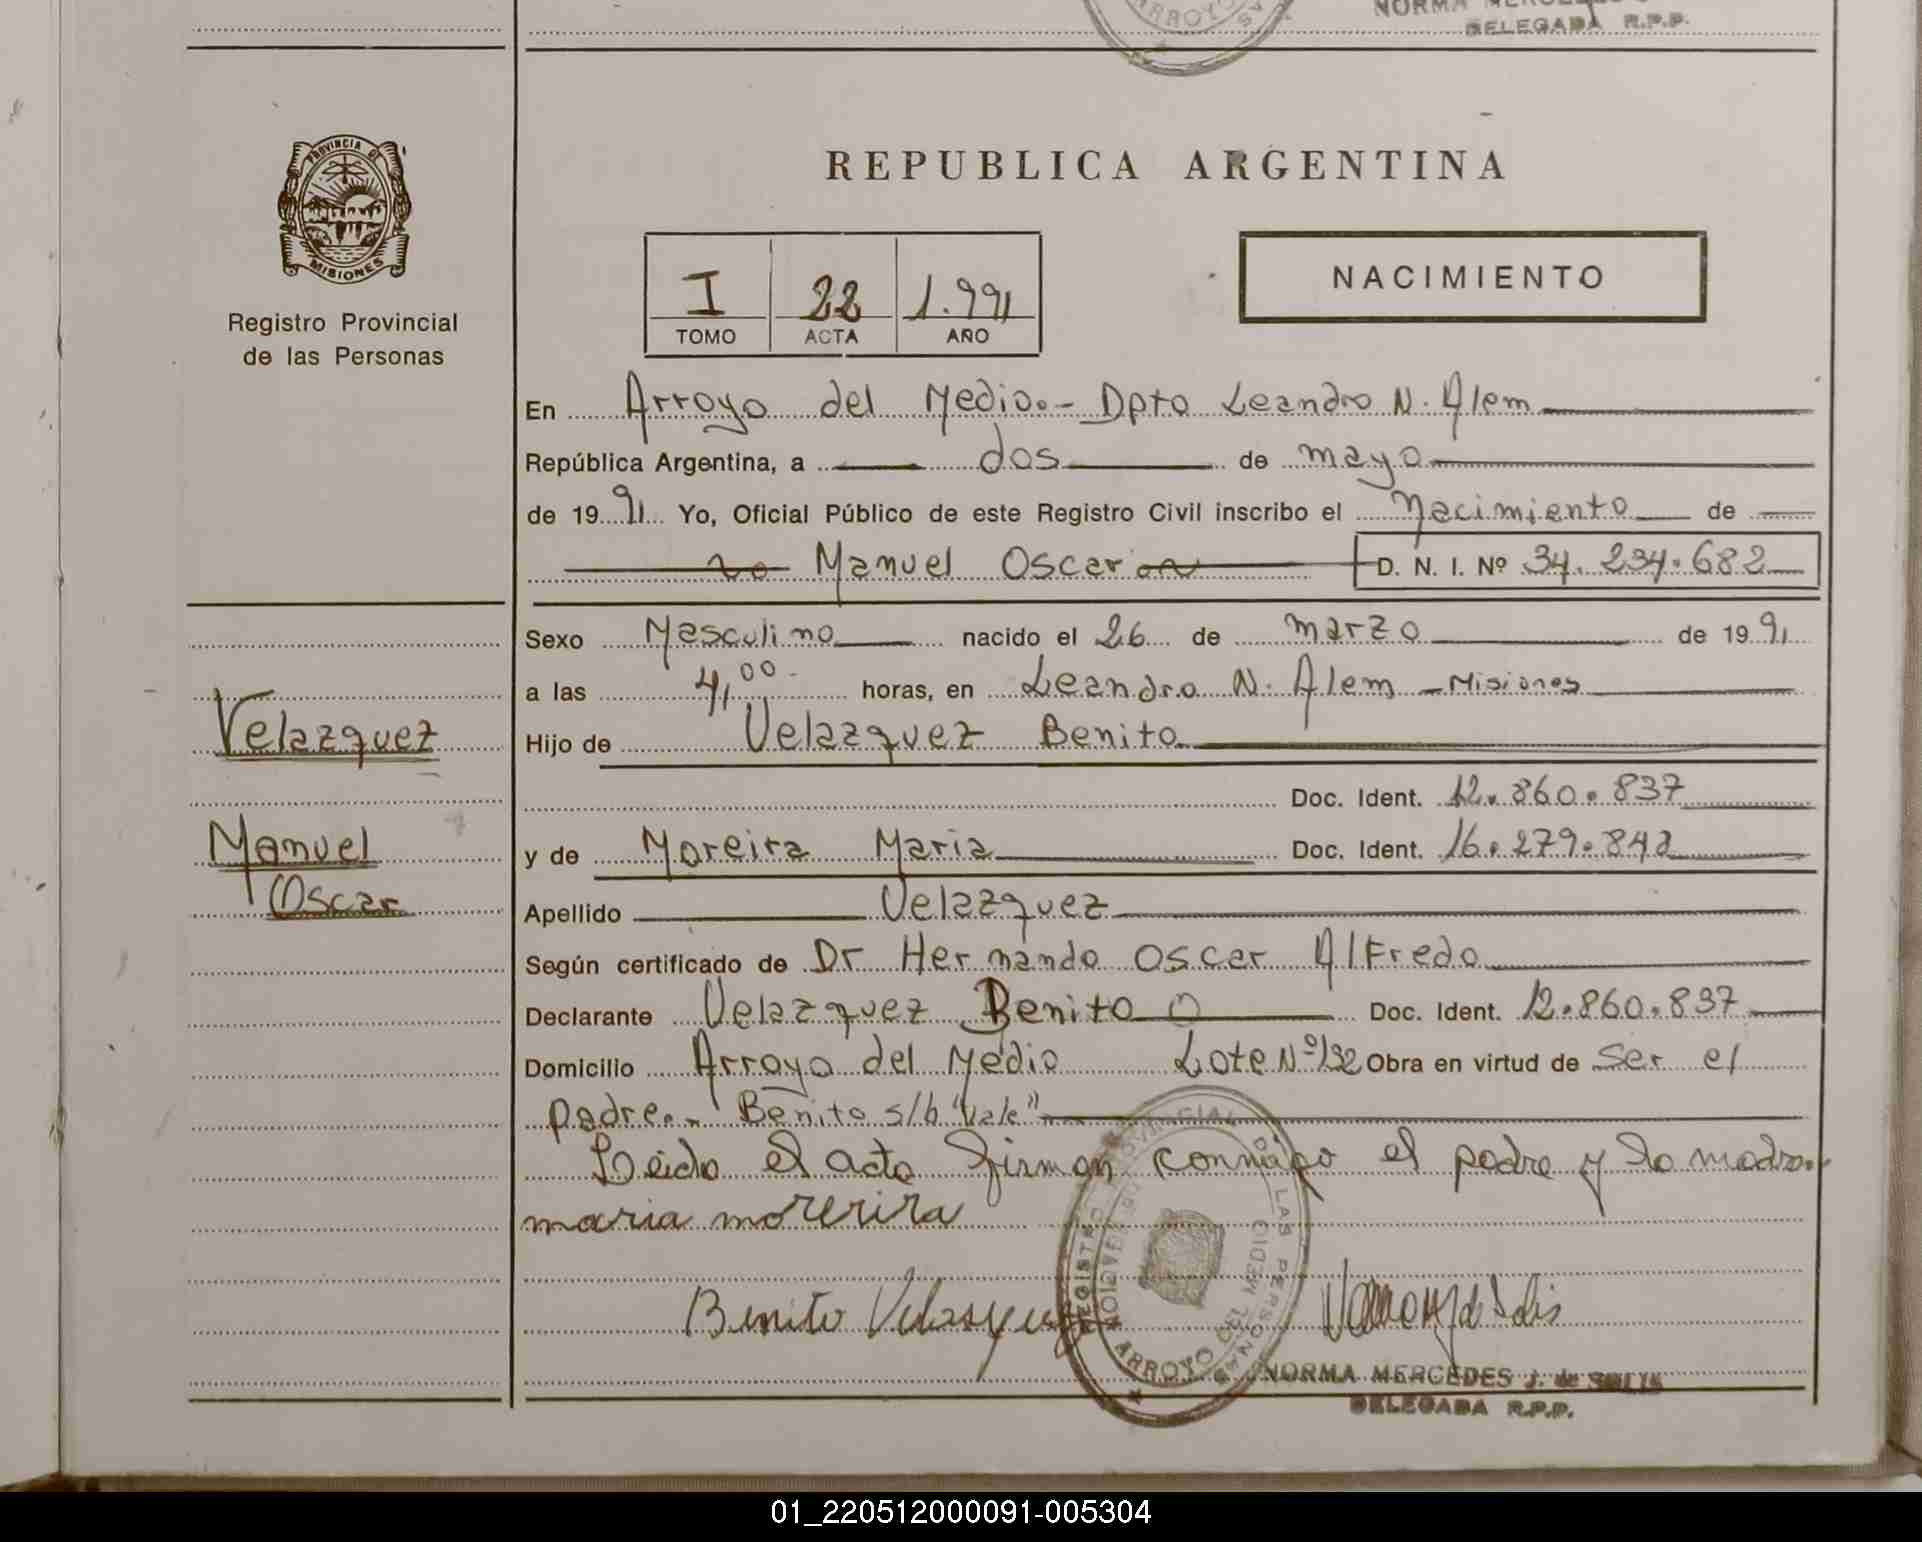 NORMA MERCEDES
DELEGADA R.P.P.
ARROYO
PROVINCIA DE
MISIONES
Registro Provincial
de las Personas
REPUBLICA ARGENTINA
I 22 1.991
TOMO ACTA AÑO
NACIMIENTO
En Arroyo del Medio.- Dpto Leandro N. Alem
República Argentina, a dos de mayo
de 1991 Yo, Oficial Público de este Registro Civil inscribo el Nacimiento de
Manuel Oscar D. N. I. Nº 34.234.682
Sexo Masculino nacido el 26 de marzo de 1991
a las 4,00 horas, en Leandro N. Alem - Misiones
Velazquez
Hijo de Velazquez Benito
Doc. Ident. 12.860.837
Manuel
Oscar
y de Moreira Maria Doc. Ident. 16.279.842
Apellido Velazquez
Según certificado de Dr Hernando Oscar Alfredo
Declarante Velazquez Benito Doc. Ident. 12.860.837
Domicilio Arroyo del Medio Lote Nº 132 Obra en virtud de Ser el
padre.- Benito s/b "Vale"
Leido el acta firman conmigo el padre y la madre.
maria morerira
Benito Velasquez
REGISTRO PROVINCIAL DE LAS PERSONAS
ARROYO DEL MEDIO
NORMA MERCEDES J. de
DELEGADA R.P.P.
01_220512000091-005304